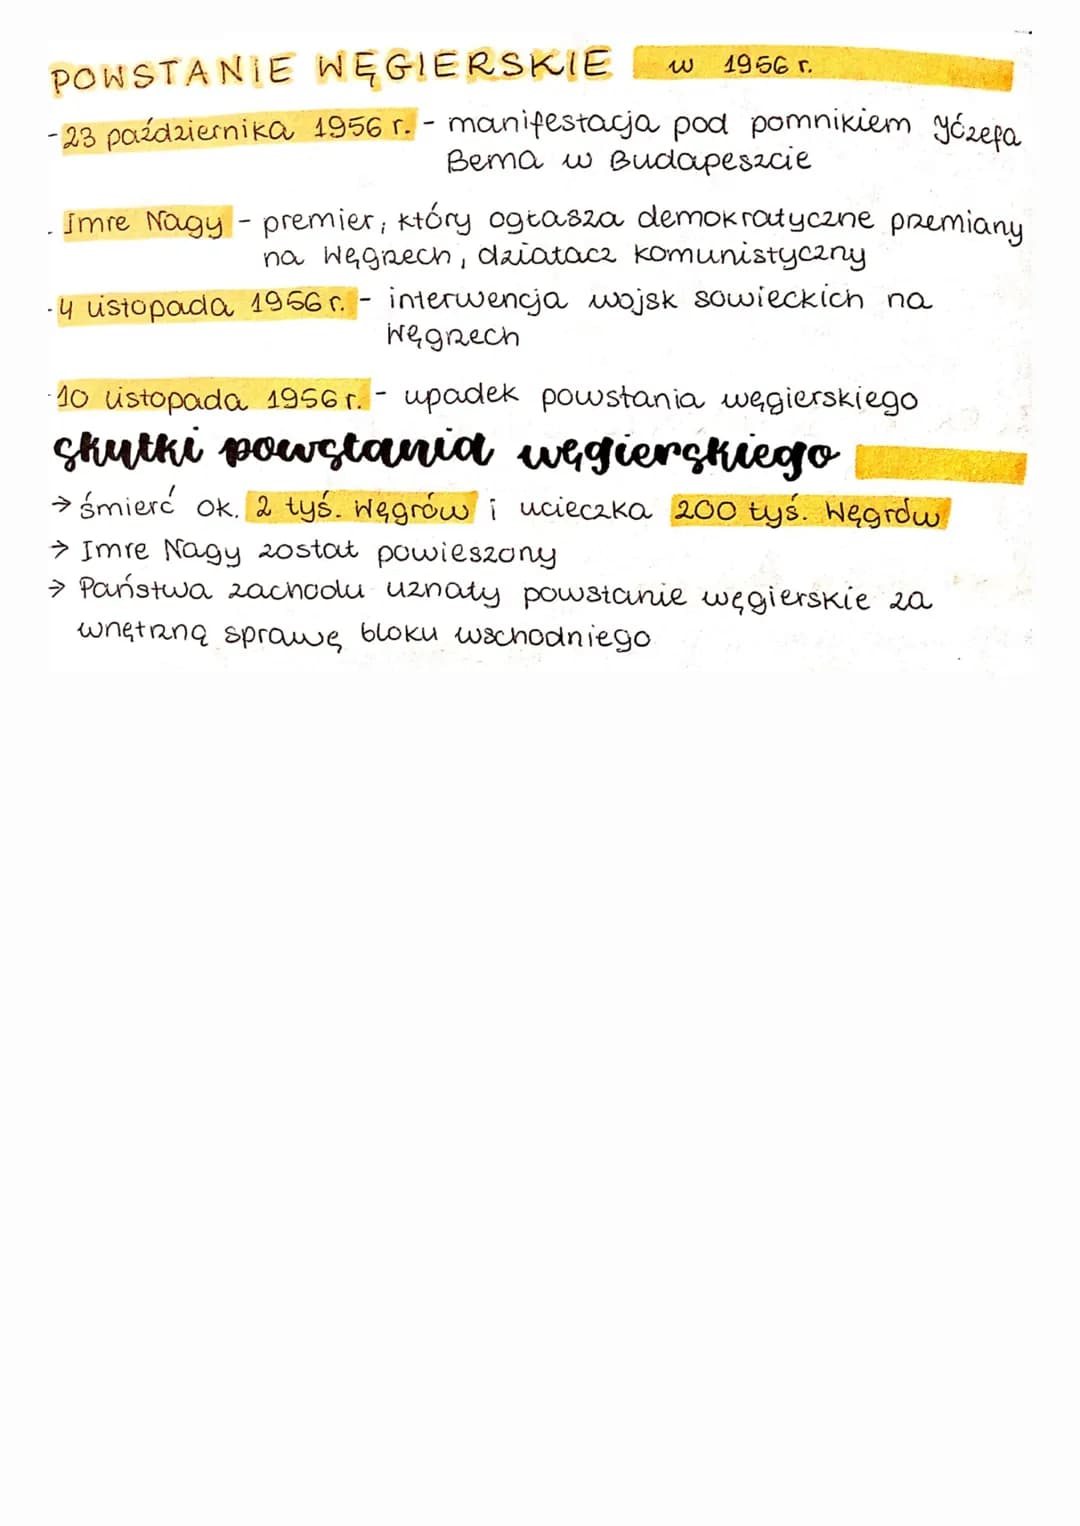 POWSTANIE WĘGIERSKIE w 1956 r.
- 23 października 1956 r. - manifestacja pod pomnikiem Józefa
Bema w Budapeszcie
. Imre Nagy - premier, który ogłasza demokratyczne przemiany
na Węgrzech, działacz komunistyczny
. 4 listopada 1956 r. - interwencja wojsk sowieckich na
Węgrzech
. 10 listopada 1956 r. - upadek powstania węgierskiego
skutki powstania węgierskiego
→ śmierć ok. 2 tyś. Węgrów i ucieczka 200 tyś. Węgrów
→ Imre Nagy został powieszony
→ Państwa zachodu uznały powstanie węgierskie za
wnętrzną sprawę bloku wschodniego